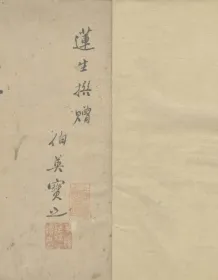 蓮生撰贈
伯英寶之